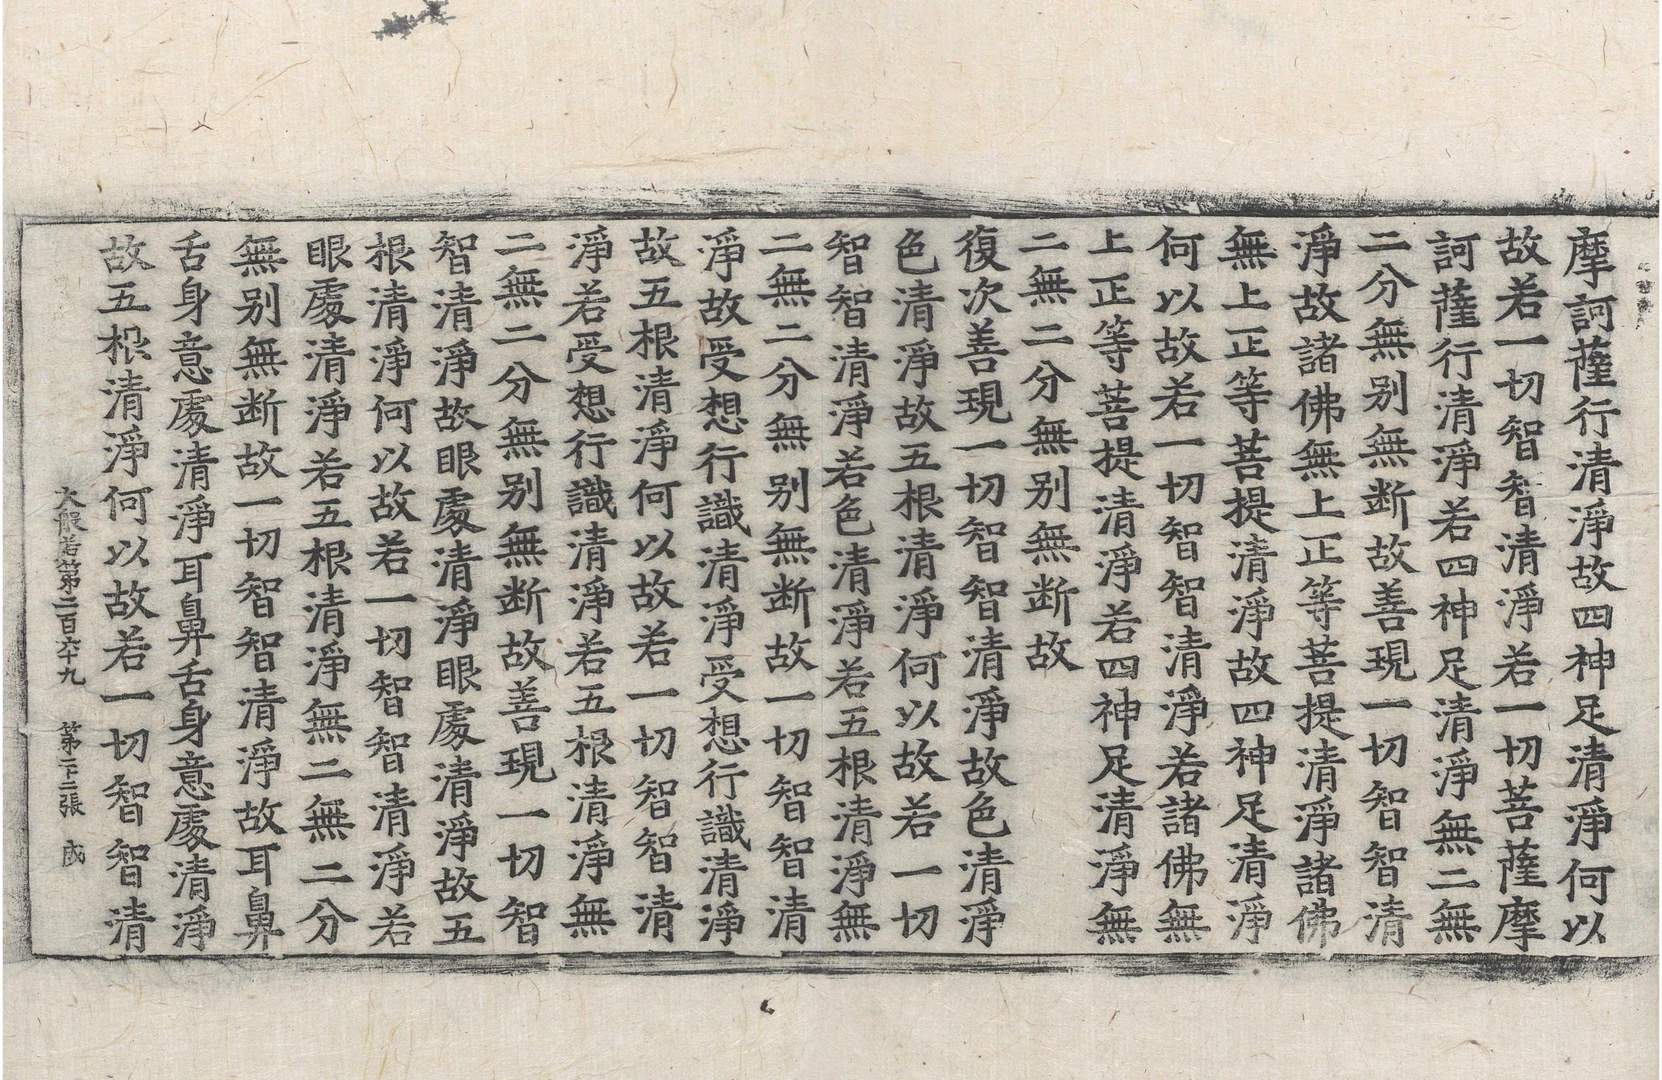 摩訶薩行清淨故四神足清淨何以
故若一切智智清淨若一切菩薩摩
訶薩行清淨若四神足清淨無二無
二分無别無断故善現一切智智清
淨故諸佛無上正等菩提清淨諸佛
無上正等菩提清淨故四神足清淨
何以故若一切智智清淨若諸佛無
上正等菩提清淨若四神足清淨無
二無二分無别無断故
復次善現一切智智清淨故色清淨
色清淨故五根清淨何以故若一切
智智清淨若色清淨若五根清淨無
二無二分無别無断故一切智智清
淨故受想行識清淨受想行識清淨
故五根清淨何以故若一切智智清
淨若受想行識清淨若五根清淨無
二無二分無别無断故善現一切智
智清淨故眼處清淨眼處清淨故五
根清淨何以故若一切智智清淨若
眼處清淨若五根清淨無二無二分
無别無断故一切智智清淨故耳鼻
舌身意處清淨耳鼻舌身意處清淨
故五根清淨何以故若一切智智清
大般若第二百六十九 第二十二張